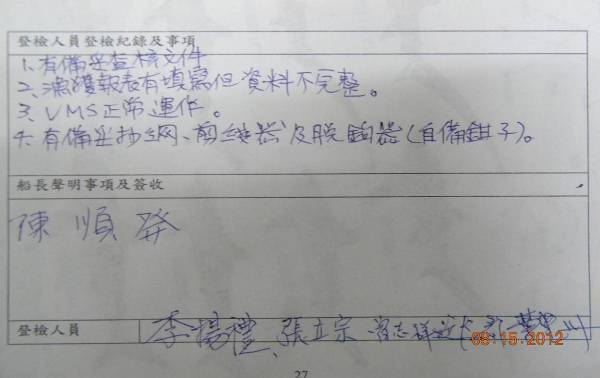 登檢人員登檢紀錄及事項
1、有備妥查核文件
2、漁獲報表有填寫但資料不完整。
3、VMS正常運作。
4、有備妥抄網、剪線器及脱鉤器(自備鉗子)。
船長聲明事項及簽收
陳順發
登檢人員 李揚禮、張立宗
08.15.2012
27